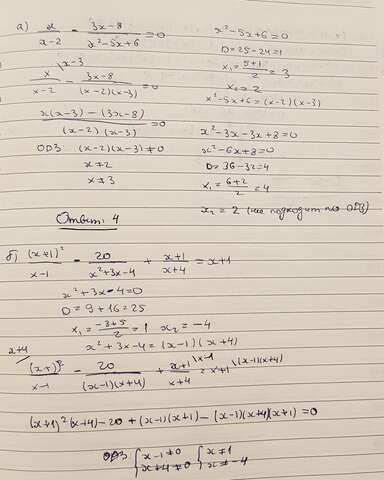 а) x/(x-2) - (3x-8)/(x²-5x+6) = 0
x²-5x+6=0
D=25-24=1
x₁=(5+1)/2=3
x₂=2
x²-5x+6=(x-2)(x-3)
x/(x-2) \x-3 - (3x-8)/((x-2)(x-3)) = 0
(x(x-3)-(3x-8))/((x-2)(x-3)) = 0
ОДЗ (x-2)(x-3)≠0
x≠2
x≠3
x²-3x-3x+8=0
x²-6x+8=0
D=36-32=4
x₁=(6+2)/2=4
x₁=2 (не подходит по ОДЗ)
Ответ: 4
б) (x+1)²/(x-1) - 20/(x²+3x-4) + (x+1)/(x+4) = x+1
x²+3x-4=0
D=9+16=25
x₁=(-3+5)/2=1 x₂=-4
x²+3x-4=(x-1)(x+4)
x+4/ (x+1)²/(x-1) - 20/((x-1)(x+4)) + (x+1)/(x+4) \x-1 = x+1 \(x-1)(x+4)
(x+1)²(x+4)-20+(x-1)(x+1)-(x-1)(x+4)(x+1)=0
ОДЗ {x-1≠0 {x≠1
{x+4≠0 {x≠-4